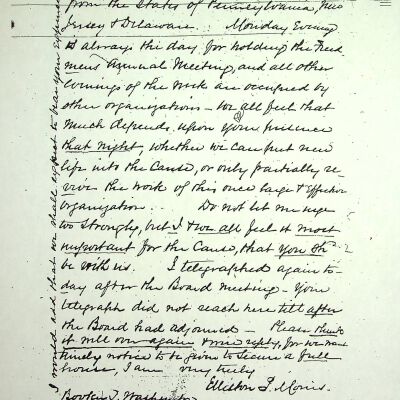 from the States of Pennsylvania, New
Jersey & Delaware. Monday Evening
is always the day for holding the Freed
mens Annual Meeting, and all other
evenings of the week are occupied by
other organizations — We all feel that
much depends upon your presence
that night, whether we can put new
life into the Cause, or only partially re-
vive the work of this once large & effective
organization. Do not let me urge
too strongly, but I & we all feel it most
important for the Cause, that you sh
be with us. I telegraphed again to-
day after the Board meeting — your
telegraph did not reach here till after
the Board had adjourned — Please think
it all over again & reply, for we want
timely notice to be given to secure a full
house, I am very truly
Elliston P. Morris.
Booker T. Washington
I would add that we shall expect to pay your expenses